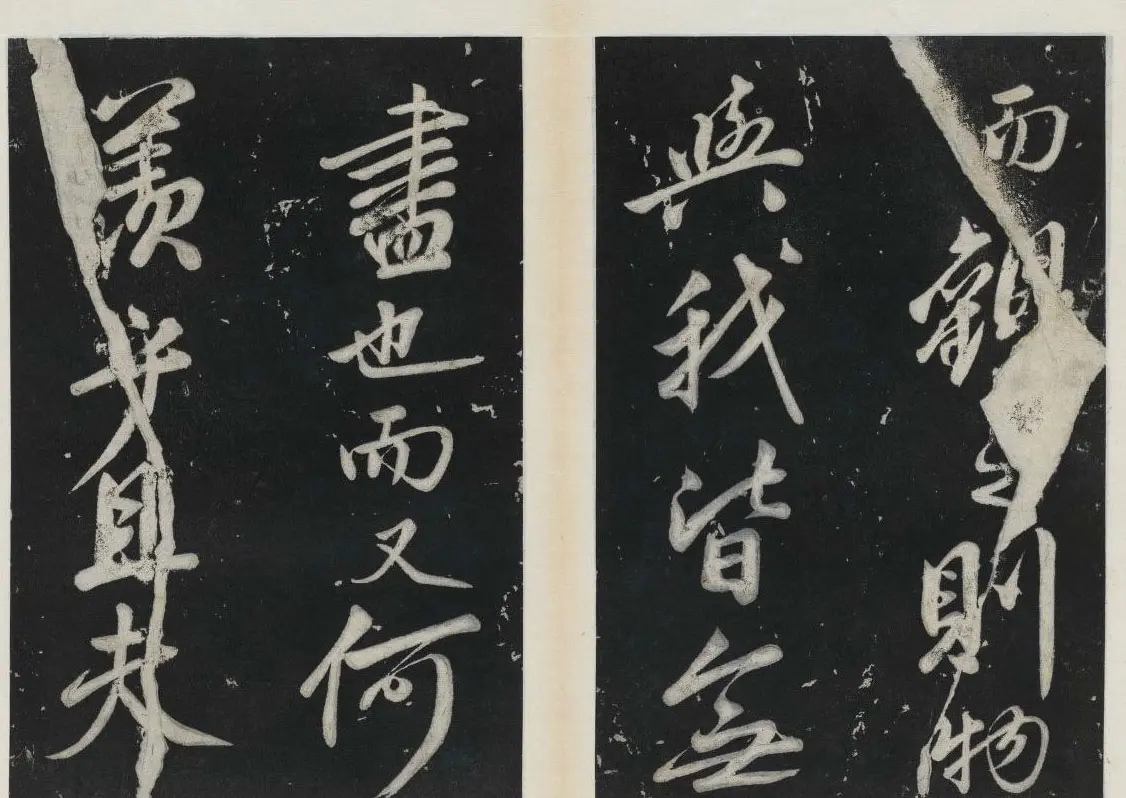 而觀之則物
與我皆無
盡也而又何
羨乎且夫